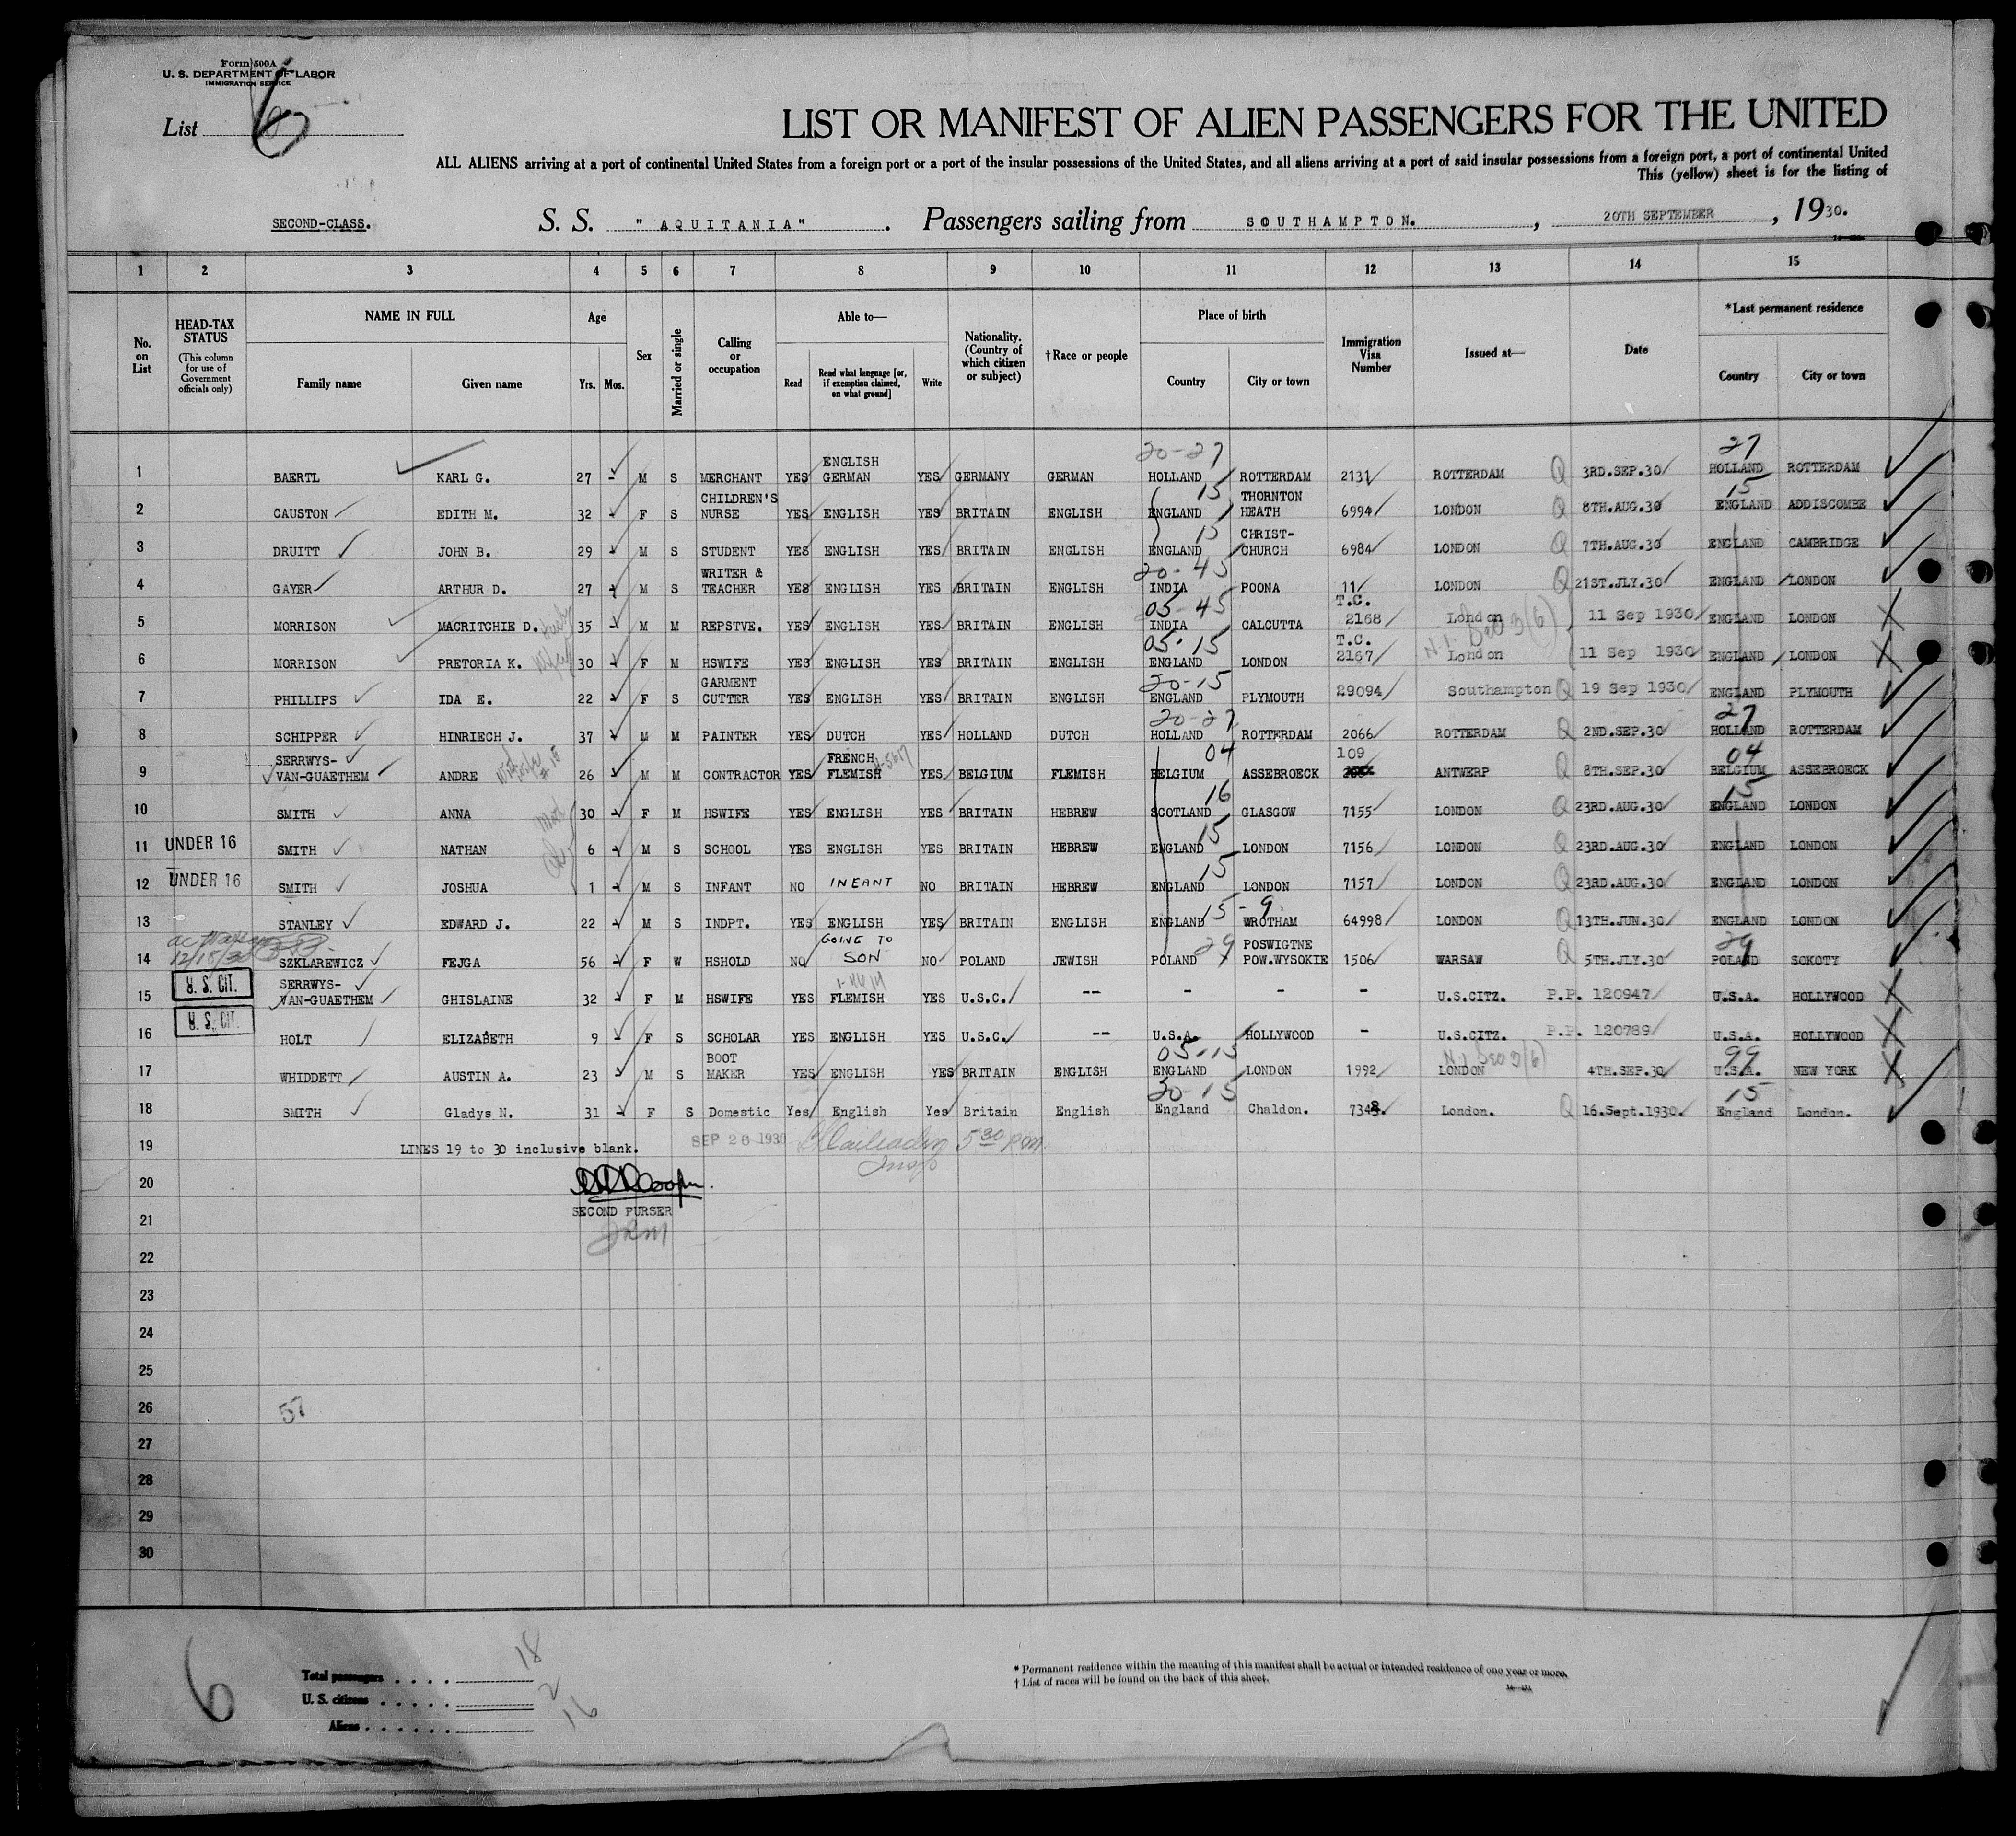 Form 500A
U. S. DEPARTMENT OF LABOR
IMMIGRATION SERVICE
List 6
LIST OR MANIFEST OF ALIEN PASSENGERS FOR THE UNITED
ALL ALIENS arriving at a port of continental United States from a foreign port or a port of the insular possessions of the United States, and all aliens arriving at a port of said insular possessions from a foreign port, a port of continental United
This (yellow) sheet is for the listing of
SECOND-CLASS. S. S. "AQUITANIA". Passengers sailing from SOUTHAMPTON. , 20TH SEPTEMBER , 1930.
1 2 3 4 5 6 7 8 9 10 11 12 13 14 15
No. on List
HEAD-TAX STATUS
(This column for use of Government officials only)
NAME IN FULL
Family name Given name
Age
Yrs. Mos.
Sex
Married or single
Calling or occupation
Able to—
Read Read what language [or, if exemption claimed, on what ground] Write
Nationality. (Country of which citizen or subject)
†Race or people
Place of birth
Country City or town
Immigration Visa Number
Issued at—
Date
*Last permanent residence
Country City or town
20-27 27
1 BAERTL KARL G. 27 - M S MERCHANT YES ENGLISH GERMAN YES GERMANY GERMAN HOLLAND ROTTERDAM 2131 ROTTERDAM Q 3RD.SEP.30 HOLLAND ROTTERDAM
15 15
2 CAUSTON EDITH M. 32 - F S CHILDREN'S NURSE YES ENGLISH YES BRITAIN ENGLISH ENGLAND THORNTON HEATH 6994 LONDON Q 8TH.AUG.30 ENGLAND ADDISCOMBE
15
3 DRUITT JOHN B. 29 - M S STUDENT YES ENGLISH YES BRITAIN ENGLISH ENGLAND CHRIST-CHURCH 6984 LONDON Q 7TH.AUG.30 ENGLAND CAMBRIDGE
20-45
4 GAYER ARTHUR D. 27 - M S WRITER & TEACHER YES ENGLISH YES BRITAIN ENGLISH INDIA POONA 11 LONDON Q 21ST.JLY.30 ENGLAND LONDON
05-45
5 MORRISON MACRITCHIE D. 35 - M M REPSTVE. YES ENGLISH YES BRITAIN ENGLISH INDIA CALCUTTA T.C. 2168 London 11 Sep 1930 ENGLAND LONDON
05-15
6 MORRISON PRETORIA K. 30 - F M HSWIFE YES ENGLISH YES BRITAIN ENGLISH ENGLAND LONDON T.C. 2167 London 11 Sep 1930 ENGLAND LONDON
20-15
7 PHILLIPS IDA E. 22 - F S GARMENT CUTTER YES ENGLISH YES BRITAIN ENGLISH ENGLAND PLYMOUTH 29094 Southampton Q 19 Sep 1930 ENGLAND PLYMOUTH
20-27 27
8 SCHIPPER HINRIECH J. 37 - M M PAINTER YES DUTCH YES HOLLAND DUTCH HOLLAND ROTTERDAM 2066 ROTTERDAM Q 2ND.SEP.30 HOLLAND ROTTERDAM
04 04
9 SERRWYS-VAN-GUAETHEM ANDRE 26 M M CONTRACTOR YES FRENCH FLEMISH YES BELGIUM FLEMISH BELGIUM ASSEBROECK 109 ANTWERP Q 8TH.SEP.30 BELGIUM ASSEBROECK
16 15
10 SMITH ANNA 30 - F M HSWIFE YES ENGLISH YES BRITAIN HEBREW SCOTLAND GLASGOW 7155 LONDON Q 23RD.AUG.30 ENGLAND LONDON
15
11 UNDER 16 SMITH NATHAN 6 - M S SCHOOL YES ENGLISH YES BRITAIN HEBREW ENGLAND LONDON 7156 LONDON Q 23RD.AUG.30 ENGLAND LONDON
15
12 UNDER 16 SMITH JOSHUA 1 - M S INFANT NO INFANT NO BRITAIN HEBREW ENGLAND LONDON 7157 LONDON Q 23RD.AUG.30 ENGLAND LONDON
15-9
13 STANLEY EDWARD J. 22 - M S INDPT. YES ENGLISH YES BRITAIN ENGLISH ENGLAND WROTHAM 64998 LONDON Q 13TH.JUN.30 ENGLAND LONDON
12/18/30 29 29
14 SZKLAREWICZ FEJGA 56 - F W HSHOLD NO GOING TO SON NO POLAND JEWISH POLAND POSWIGTNE POW.WYSOKIE 1506 WARSAW Q 5TH.JLY.30 POLAND SOKOTY
15 U. S. CIT. SERRWYS-VAN-GUAETHEM GHISLAINE 32 - F M HSWIFE YES FLEMISH YES U.S.C. -- - - - U.S.CITZ. P.P. 120947 U.S.A. HOLLYWOOD
16 U. S. CIT. HOLT ELIZABETH 9 - F S SCHOLAR YES ENGLISH YES U.S.C. -- U.S.A. HOLLYWOOD - U.S.CITZ. P.P. 120789 U.S.A. HOLLYWOOD
05-15 99
17 WHIDDETT AUSTIN A. 23 M S BOOT MAKER YES ENGLISH YES BRITAIN ENGLISH ENGLAND LONDON 1992 LONDON 4TH.SEP.30 U.S.A. NEW YORK
20-15 15
18 SMITH Gladys N. 31 - F S Domestic Yes English Yes Britain English England Chaldon. 7348. London. Q 16.Sept.1930. England London.
19 LINES 19 to 30 inclusive blank. SEP 26 1930 5 30 pm.
20
SECOND PURSER
21
22
23
24
25
26 57
27
28
29
30
6
Total passengers . . . . 18
U. S. citizens . . . . . 2
Aliens . . . . . . 16
* Permanent residence within the meaning of this manifest shall be actual or intended residence of one year or more.
† List of races will be found on the back of this sheet.